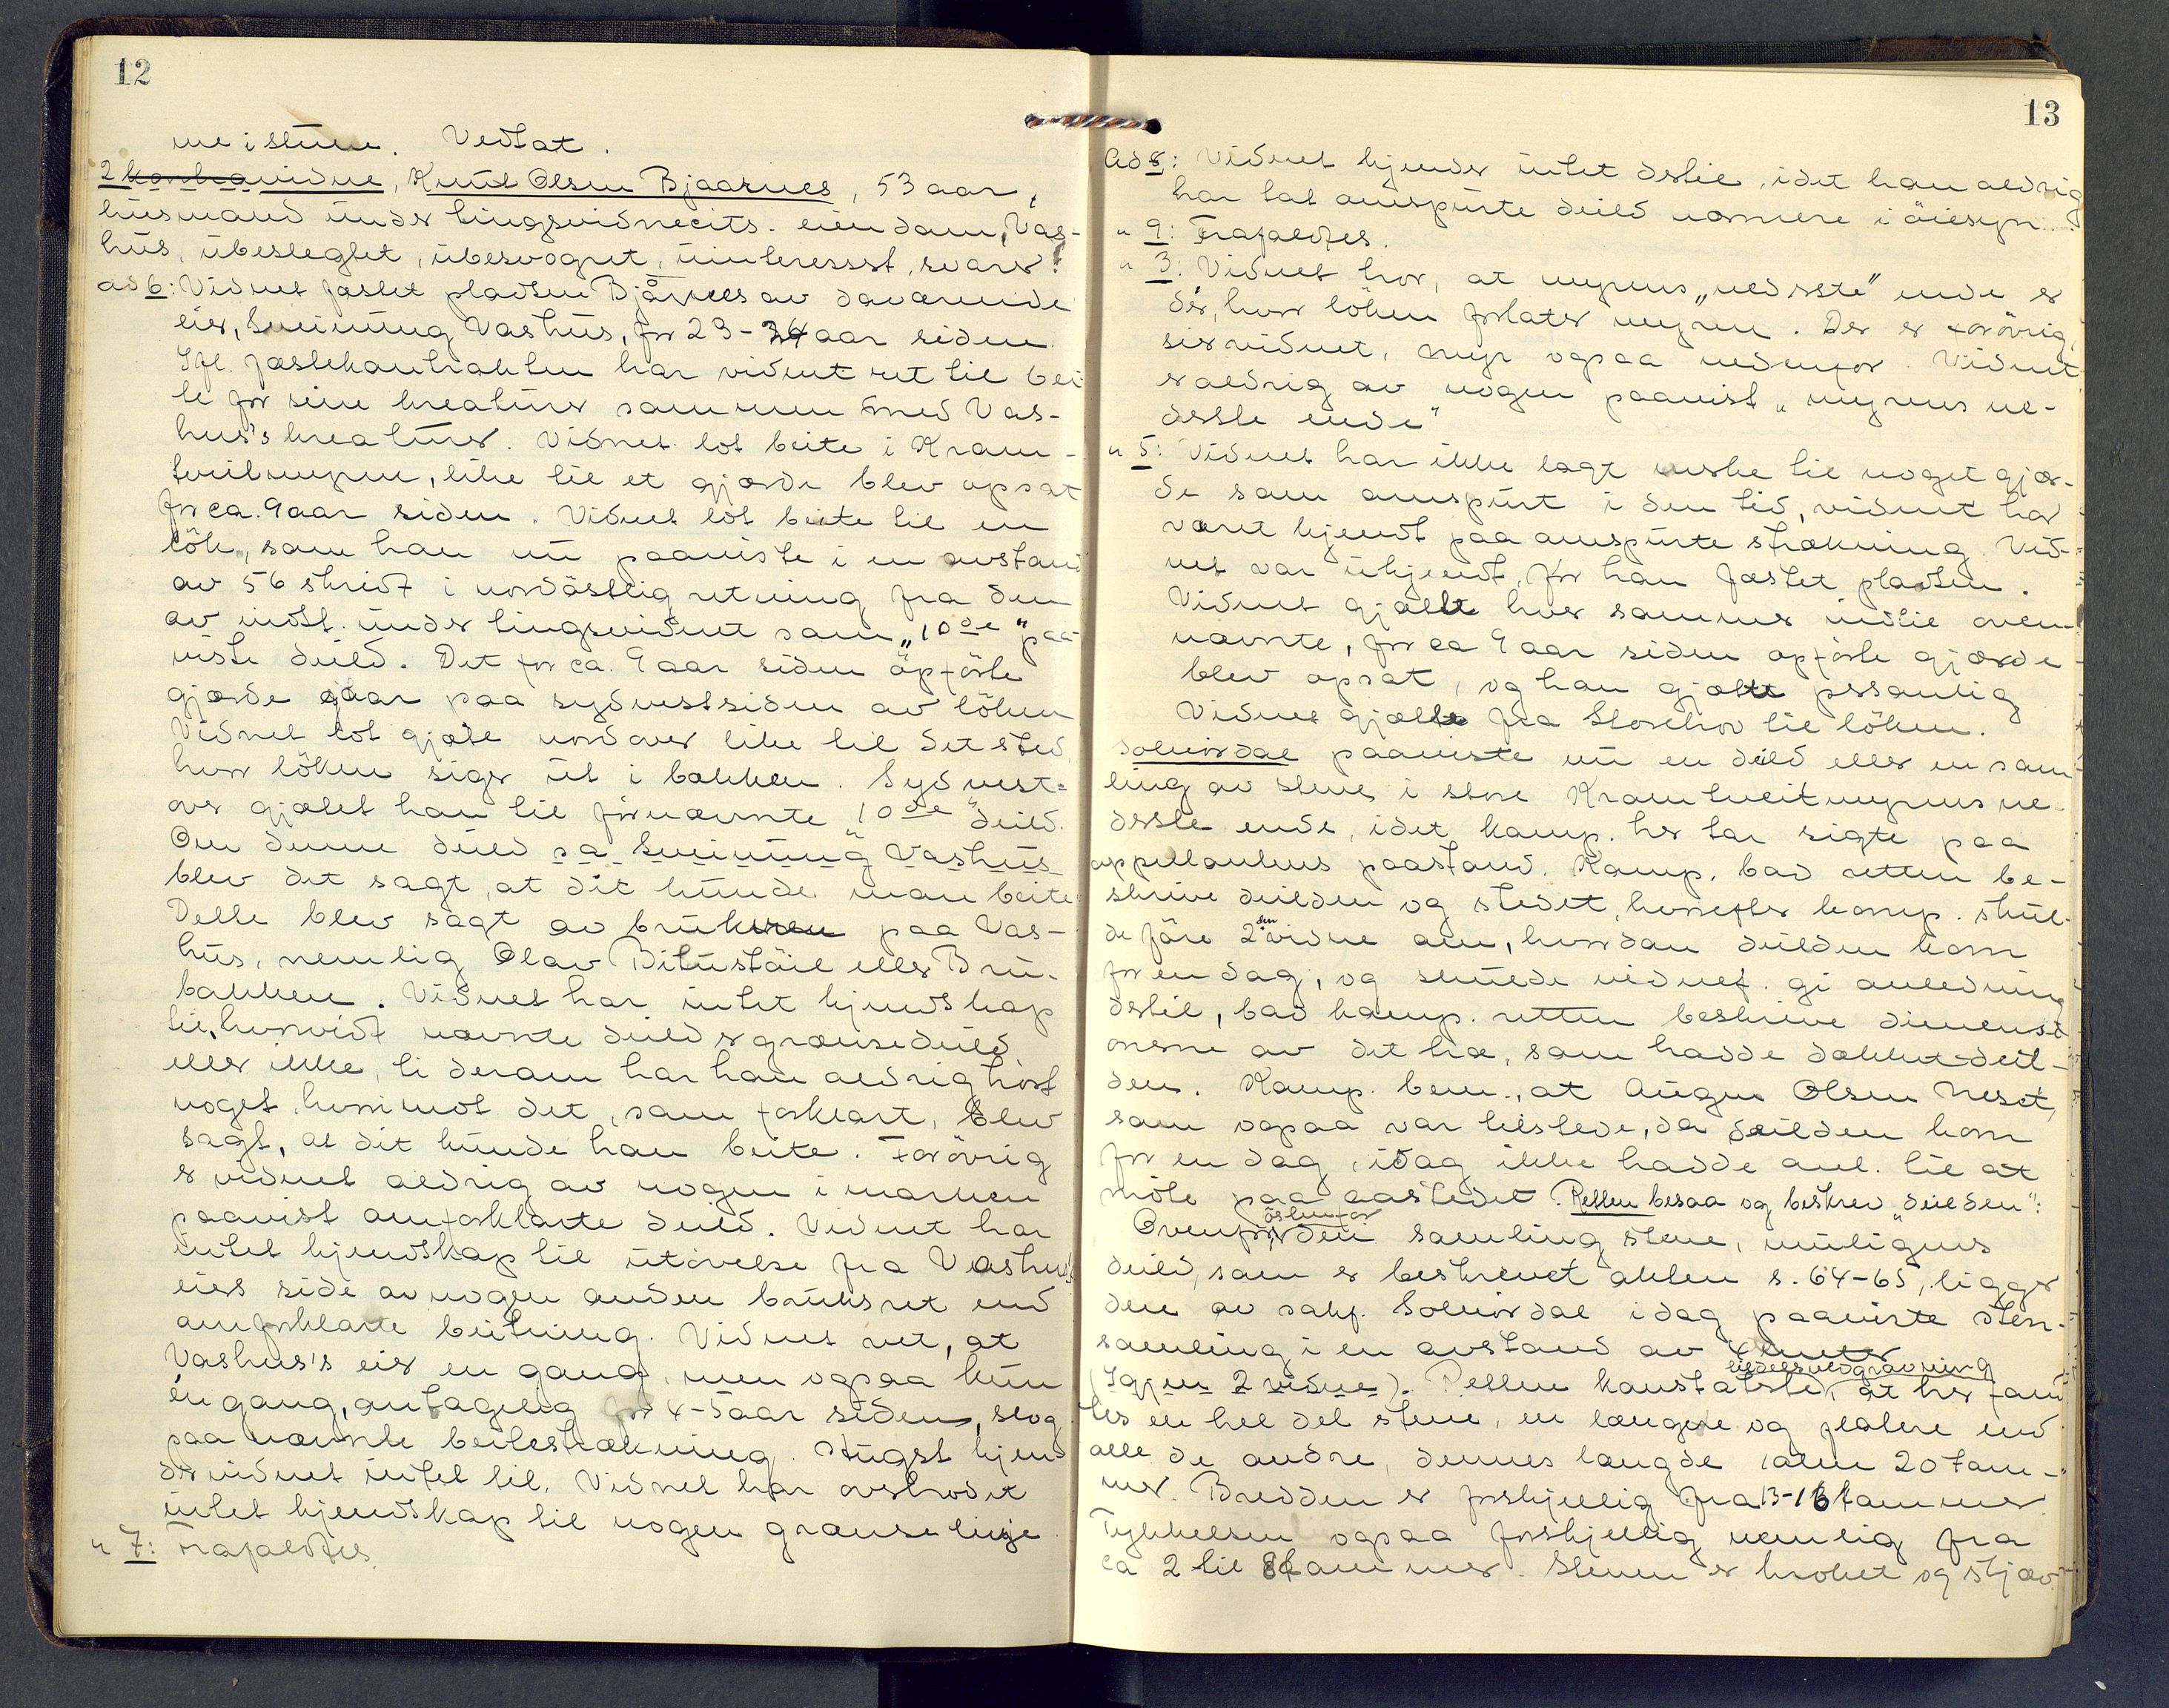 12
me i stuen. Vedtat.
2 kontravidne, Knut Olsen Bjaarnes, 53 aar,
husmand under tingsvidnecits. eiendom, Vas-
hus, ubeslegtet, ubesvogret, uinteressert, svarer:
ad 6: Vidnet fæstet pladsen Bjårnes av daværende
eier, Sveinung Vashus, for 23-24 aar siden.
Ifl. fæstekontrakten har vidnet ret til bei-
te for sine kreaturer sammen med Vas-
hus's kreaturer. Vidnet lot beite i Kram-
tveitmyren, like til et gjærde blev opsat
for ca. 9 aar siden. Vidnet lot beite til en
lök, som han nu paaviste i en avstand
av 56 skridt i nordöstlig retning fra den
av indst. under tingsvidnet som "10de" paa-
viste deild. Det for ca. 9 aar siden opförte
gjærde gaar paa sydvestsiden av löken
Vidnet lot gjæte nordover like til det sted,
hvor löken siger ut i bækken. Sydvest-
over gjætet han til förnævnte "10de" deild.
Om denne deild sa Sveinung Vashus
blev det sagt, at dit kunde man beite
Dette blev sagt av brukeren paa Vas-
hus, nemlig Olav Bitustöil eller Bru-
bakken. Vidnet har intet kjendskap
til, hvorvidt nævnte deild er grænsedeild
eller ikke, ti derom har han aldrig hört
noget, hvorimot det, som forklart, blev
sagt, at dit kunde han beite. Forövrig
er vidnet aldrig av nogen i marken
paavist omforklarte deild. Vidnet har
intet kjendskap til utövelse fra Vashus's
eiers side av nogen anden bruksret end
omforklarte beitning. Vidnet vet, at
Vashus's eier en gang, men ogsaa kun
én gang, antagelig for 4-5 aar siden, slog
paa nævnte beitestrækning. Hugst kjen-
der vidnet intet til. Vidnet har overhodet
intet kjendskap til nogen grænselinje.
" 7: Frafaldtes.
13
Ad 8: Vidnet kjender intet dertil, idet han aldrig
har tat omspurte deild nærmere i öiesyn.
" 9: Frafaldtes.
" 3: Vidnet tror, at myrens "nederste" ende er
der, hvor löken forlater myren. Der er forövrig,
sier vidnet, myr ogsaa nedenfor. Vidnet
er aldrig av nogen paavist "myrens ne-
derste ende"
" 5: Vidnet har ikke lagt merke til noget gjær-
de som omspurt i den tid, vidnet har
været kjendt paa omspurte strækning. Vid-
net var ukjendt, för han fæstet pladsen.
Vidnet gjætte hver sommer indtil oven-
nævnte, for ca 9 aar siden opförte gjærde
blev opsat, og han gjætte personlig
Vidnet gjætte fra Storehov til löken.
Solnördal paaviste nu en deild eller en sam-
ling av stene i store Kramtveitmyrens ne-
derste ende, idet komp. her tar sigte paa
appellantens paastand. Komp. bad retten be-
skrive deilden og stedet, hvorefter komp. skul-
de före 2den vidne om, hvordan deilden kom
for en dag, og skulde vidnef. gi anledning
dertil, bad komp. retten beskrive dimensi-
onerne av det træ, som hadde dækket deil-
den. Komp. bem., at Augun Olsen Neset,
som ogsaa var tilstede, da deilden kom
for en dag, idag ikke hadde anl. til at
möte paa aastedet. Retten besaa og beskrev "deilden":
Ovenfor östenfor den samling stene, muligens
deild, som er beskrevet akten s. 64-65, ligger
den av sakf. Solnördal idag paaviste sten-
samling i en avstand av 6 meter
(Igjen 2 vidne). Retten konstaterte, tildels ved gravning at her fand-
tes en hel del stene, en længere og flatere end
alle de andre, dennes længde 1 alen 20 tom-
mer. Bredden er forskjellig fra 13-16 tommer
Tykkelsen ogsaa forskjellig nemlig fra
ca 2 til 8 tommer. Stenen er kroket og skjæv